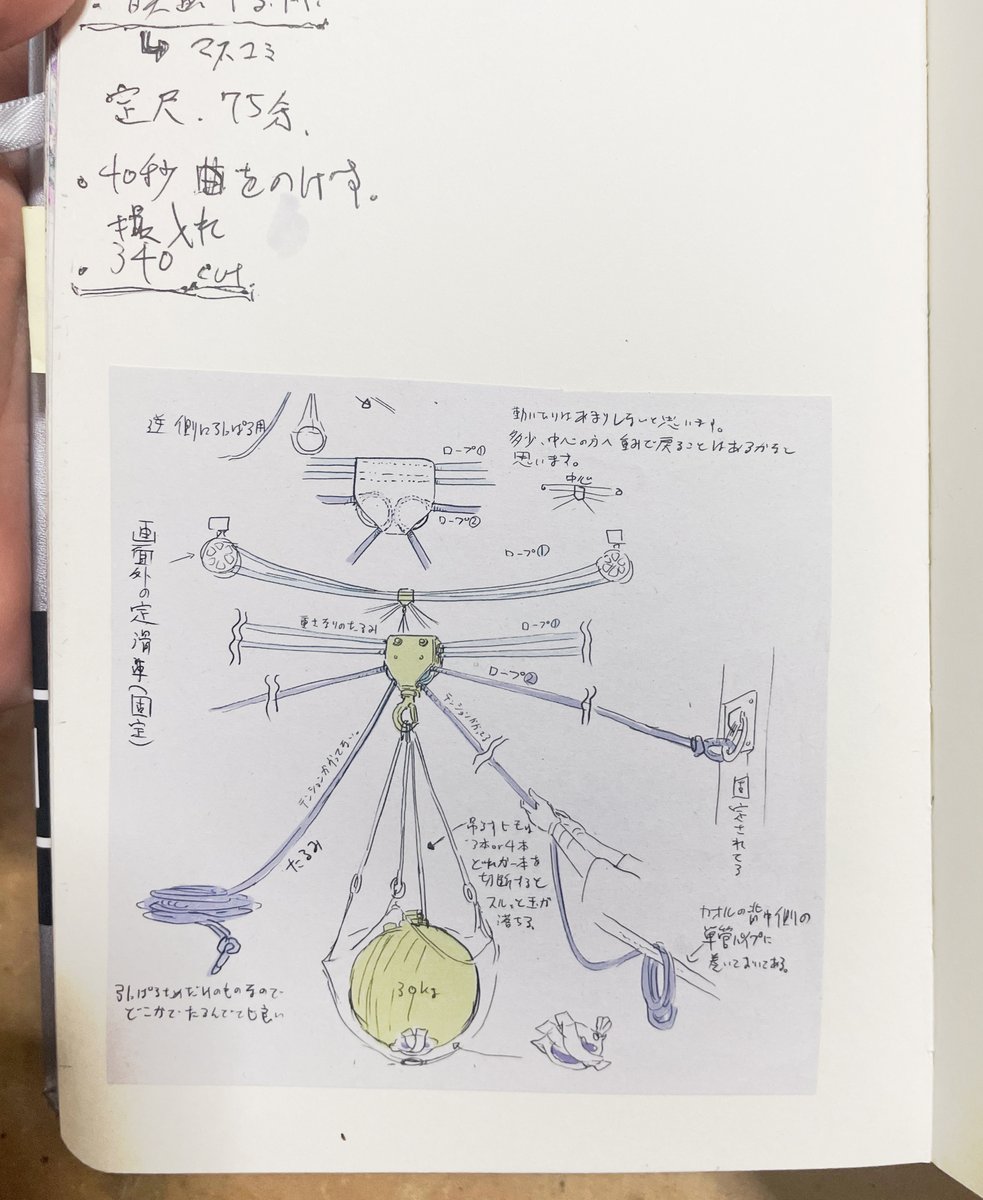 マスコミ
定尺. 75余.
• 40秒 曲をのばす。
撮入れ
• 340 cut.
逆側に引っぱる用
ロープ①
ロープ②
動いたりはあまりしないと思います。
多少、中心の方へ重みで戻ることはあるかなと
思います。
中心
画面外の定滑車(固定)
ロープ①
重さなりのたるみ
ロープ①
ロープ②
テンションかかってない。
テンションかかってる
たるみ
固定されてる
吊るすヒモは
3本or4本
どれか一本を
切断すると
スルッと玉が
落ちる
カオルの背中側の
単管パイプに
巻いておいてある。
30kg
引っぱるためだけのものなので
どこかでたるんでても良い